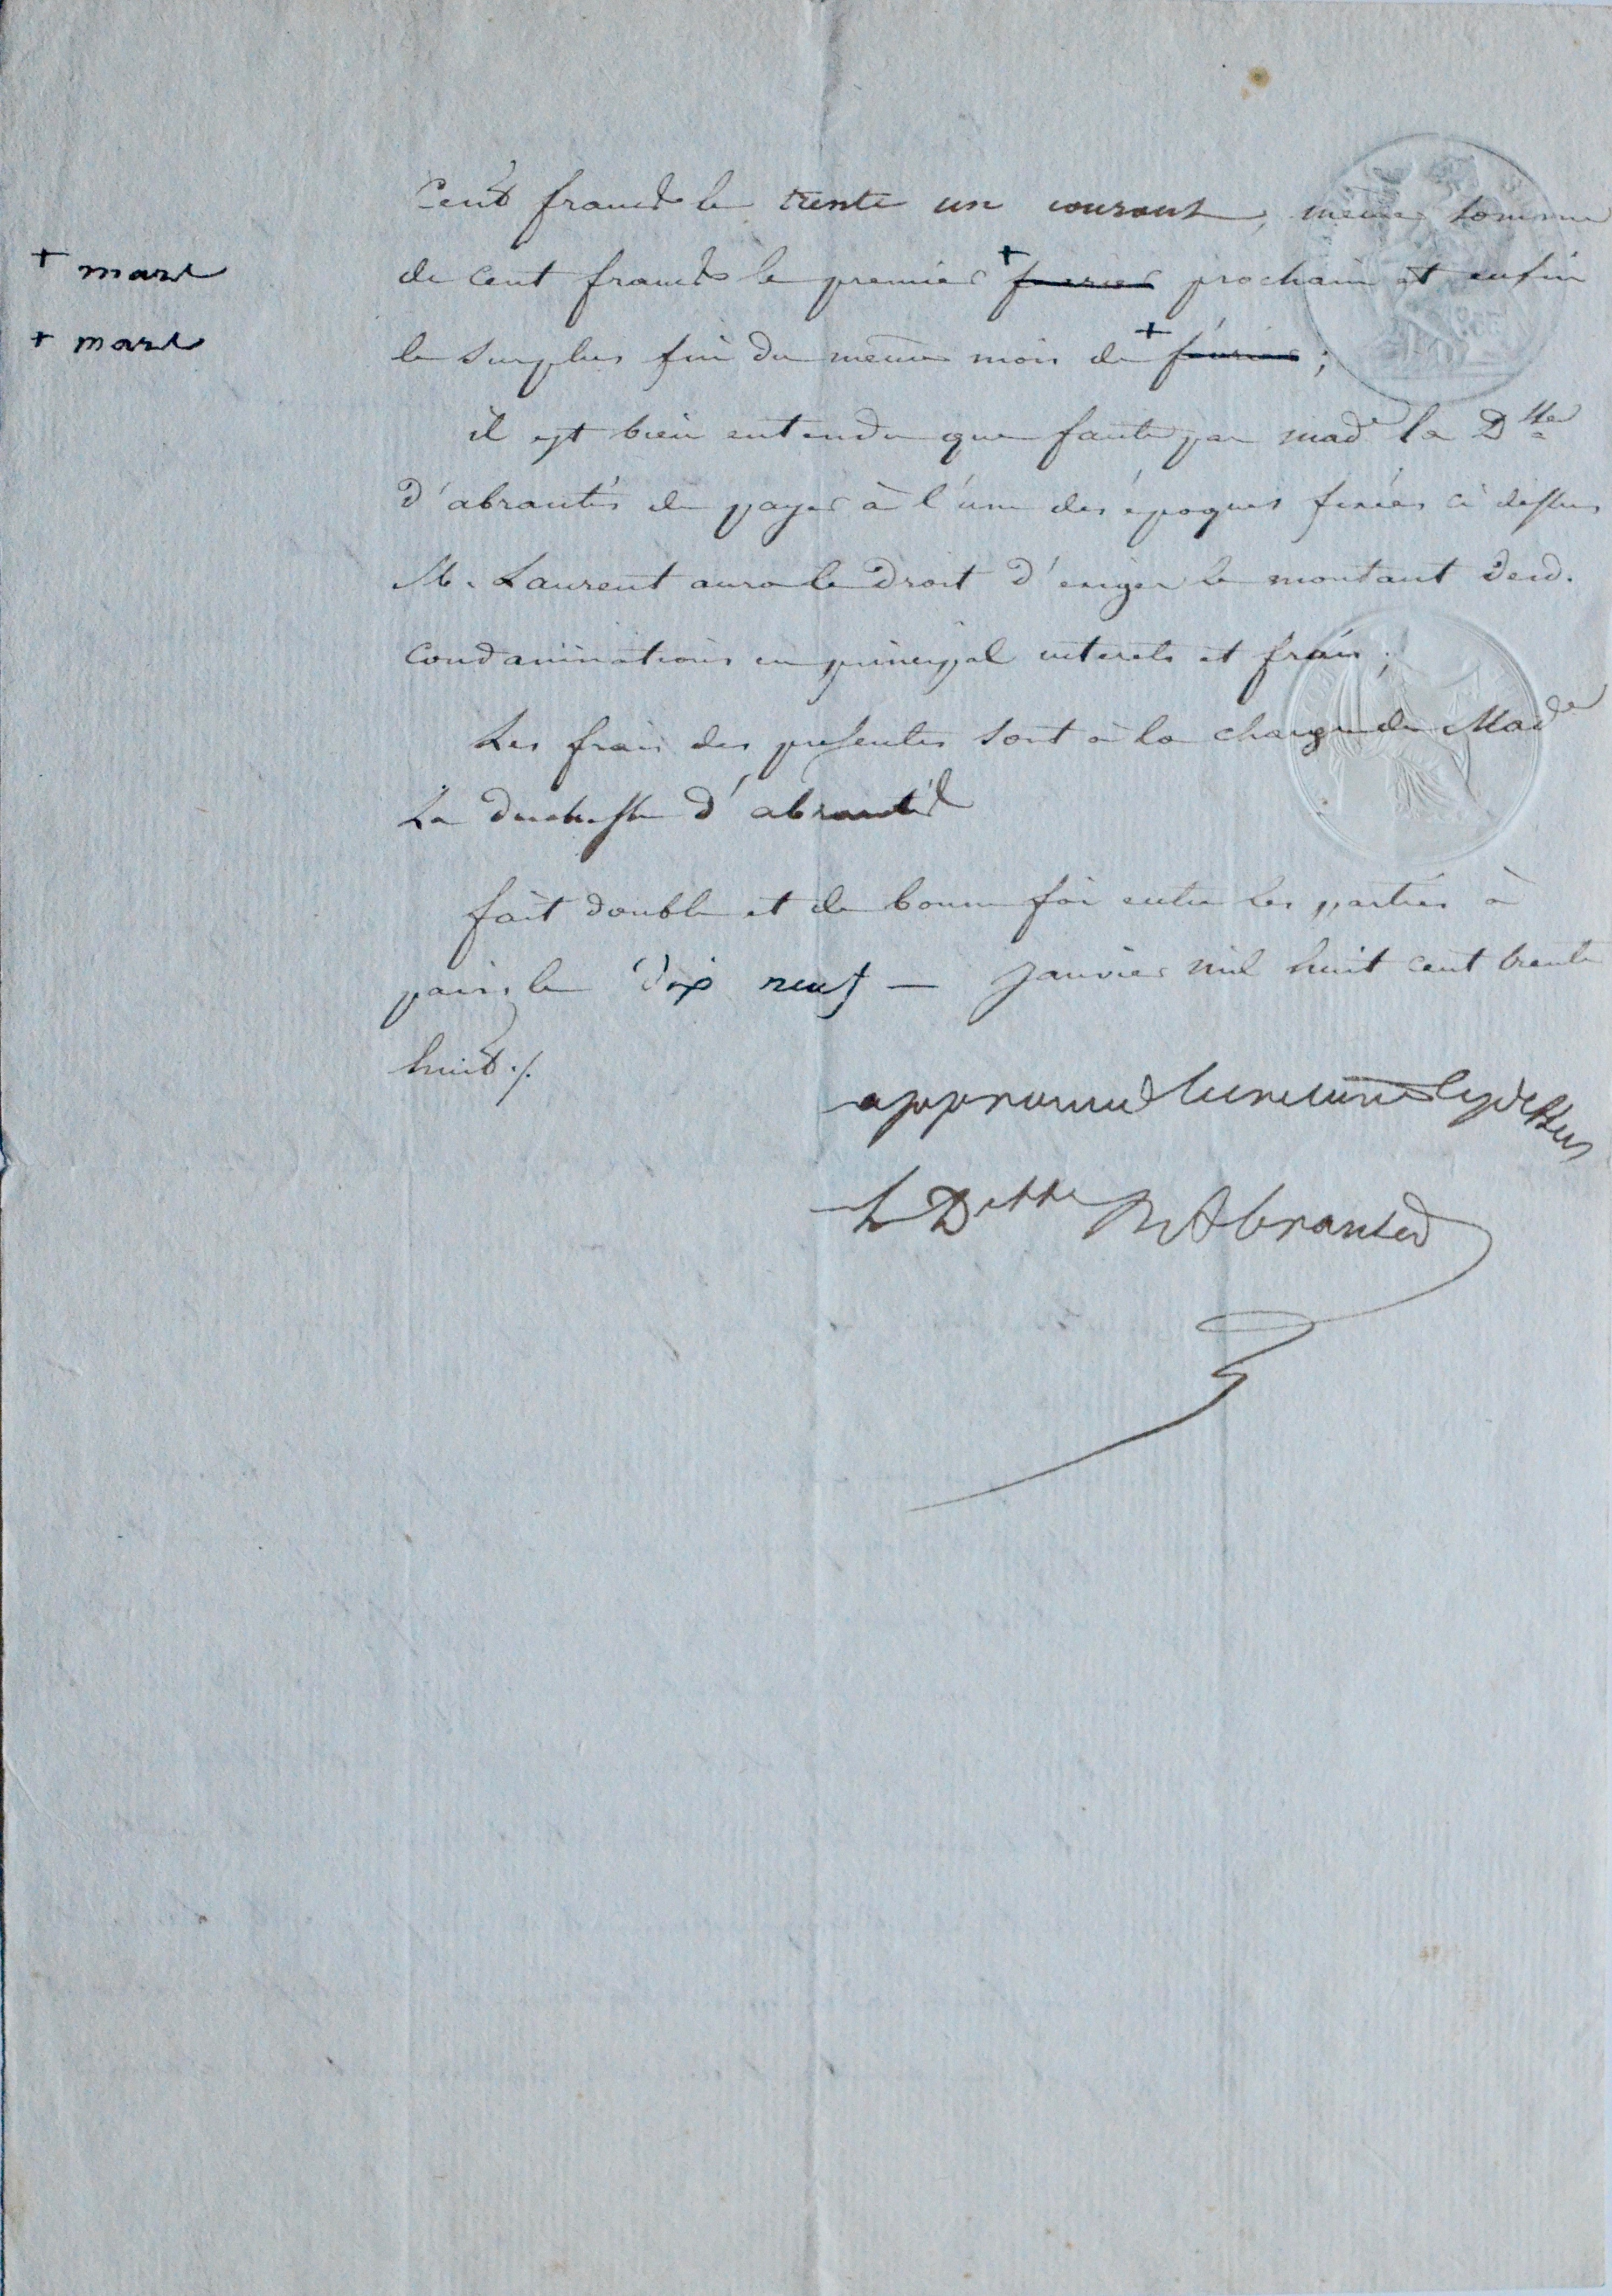 Cent francs le trente un courant, meme somme
+ mars
de cent francs le premier + fevrier prochain et enfin
+ mars
le surplus fin du meme mois de + février ;
il est bien entendu que faute par made la Dsse
d'abrantès de payer à l'une des époques fixées ci dessus
M. Laurent aura le droit d'exiger le montant desd.
condamnations en principal interets et frais ;
Les frais des presentes sont à la charge de Made
La duchesse d'abrantès
fait double et de bonne foi entre les parties à
paris le dix neuf — janvier mil huit cent trente
huit ./.
approuvé l'écriture cy dessus
La Dsse D'Abrantès